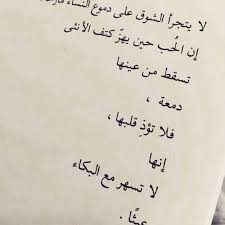 لا يتجرأ الشوق على دموع النساء
إن الحُب حين يهزّ كتف الأنثى
تسقط من عينها
دمعة ،
فلا تؤذِ قلبها ،
إنها
لا تسهر مع البكاء
عبثًا .